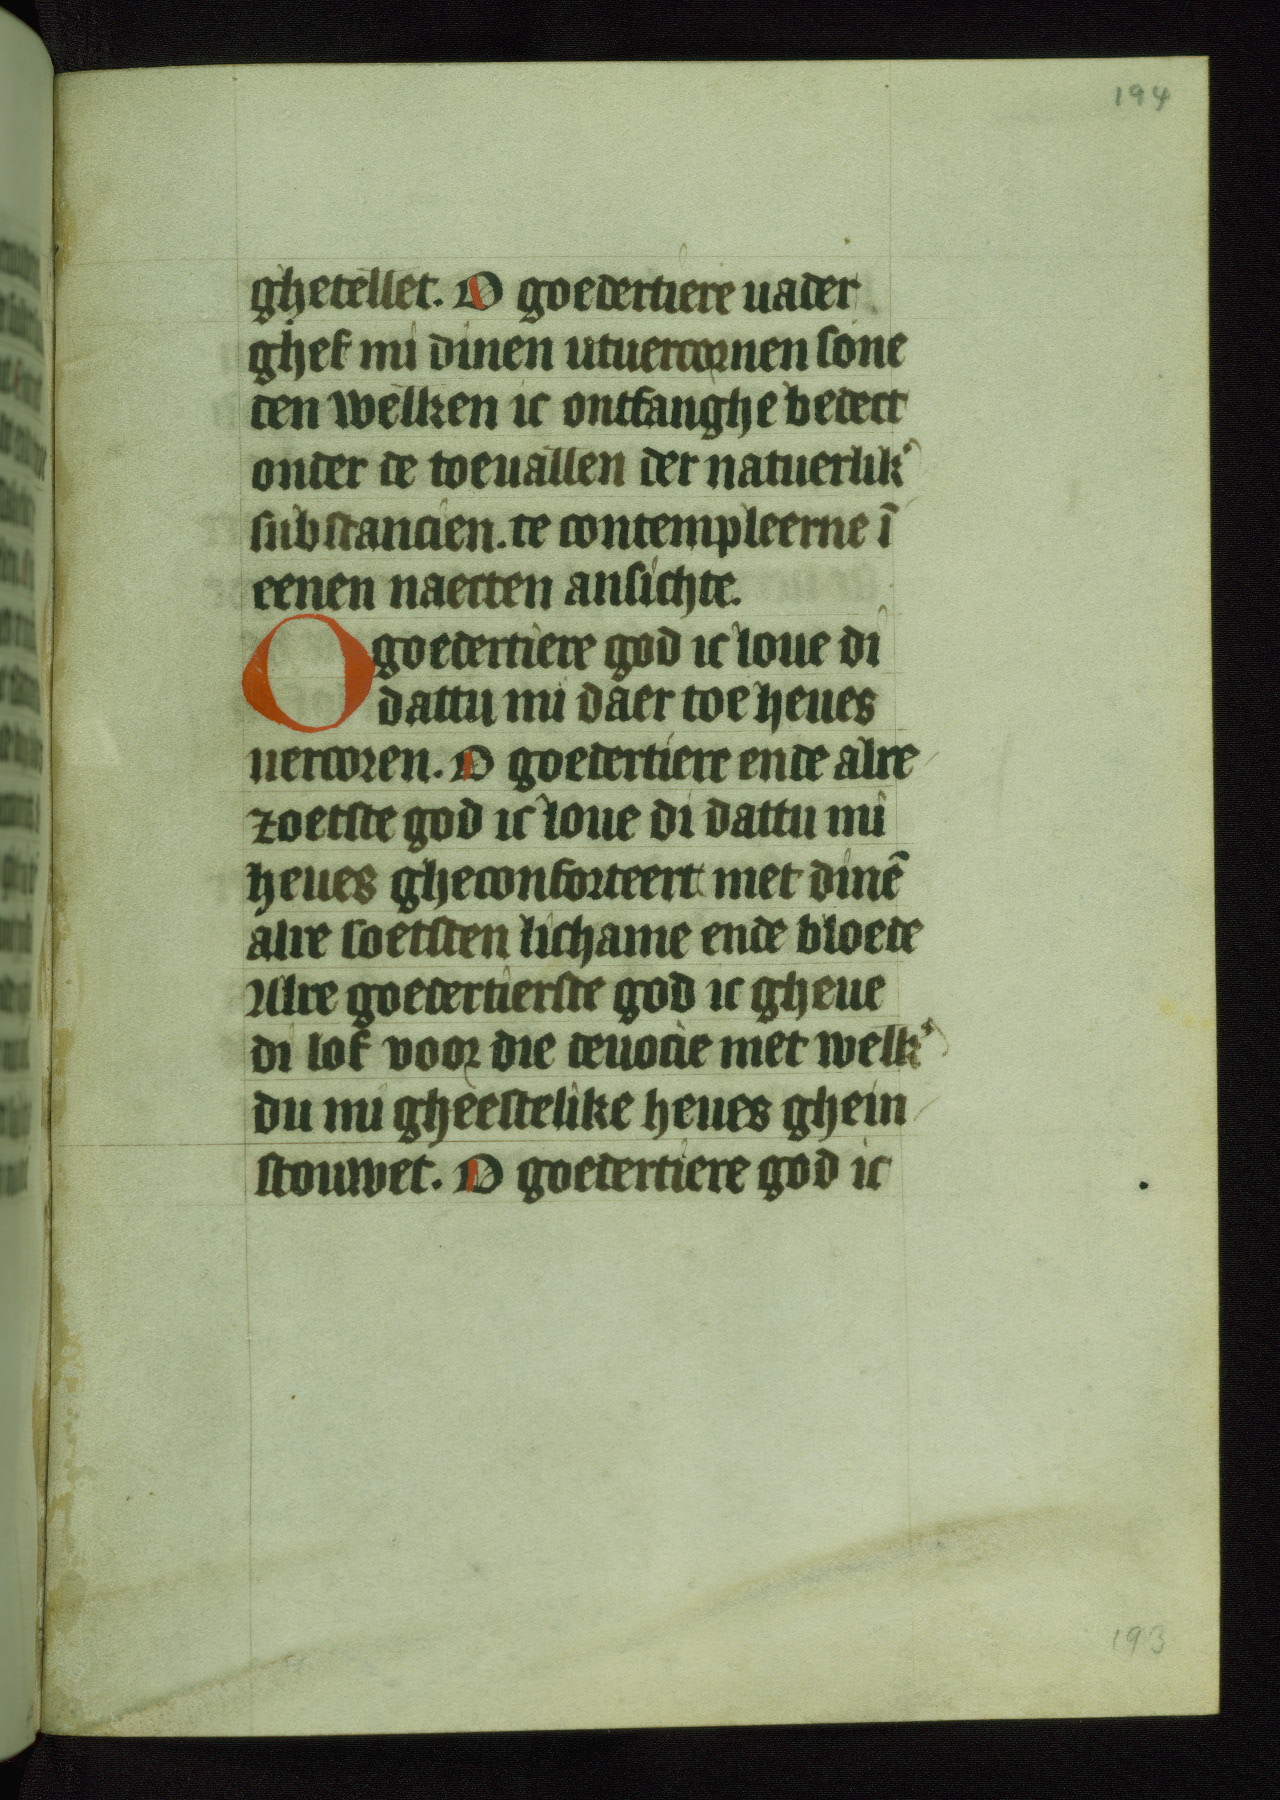 194
ghetellet. O goedertiere uader
ghef mi dinen utuercornen sone
den welken ic ontfanghe bedect
onder de toeuallen der natuerlik'
substancien. te contempleerne ī
eenen naecten ansichte.
O goedertiere god ic loue di
dattu mi daer toe heues
uercoren. O goedertiere ende alre
zoetste god ic loue di dattu mi
heues gheconforteert met dinē
alre soetsten lichame ende bloede
Alre goedertierste god ic gheue
di lof voor die deuocie met welk'
du mi gheestelike heues ghein
stouwet. O goedertiere god ic
193